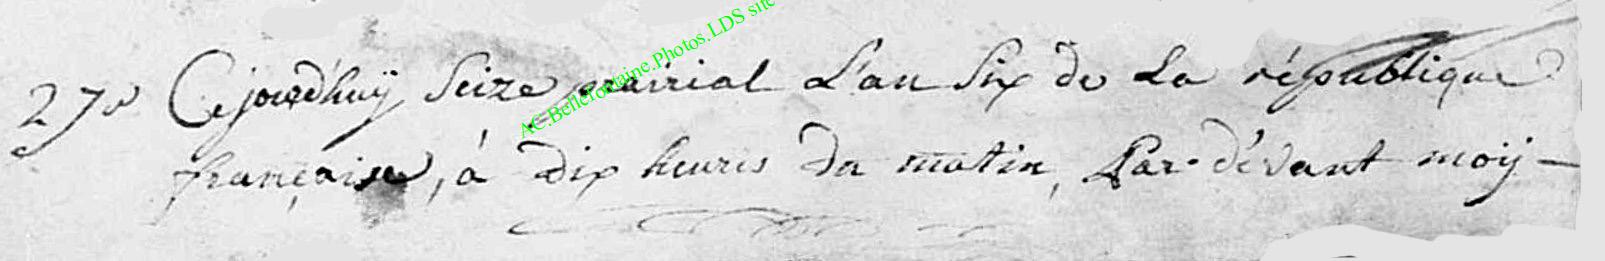 27e Cejourd'huÿ Seize prairial L'an Six de La république
française, à dix heures du matin, Par-dévant moÿ -
AC.Bellefontaine.Photos.LDS site